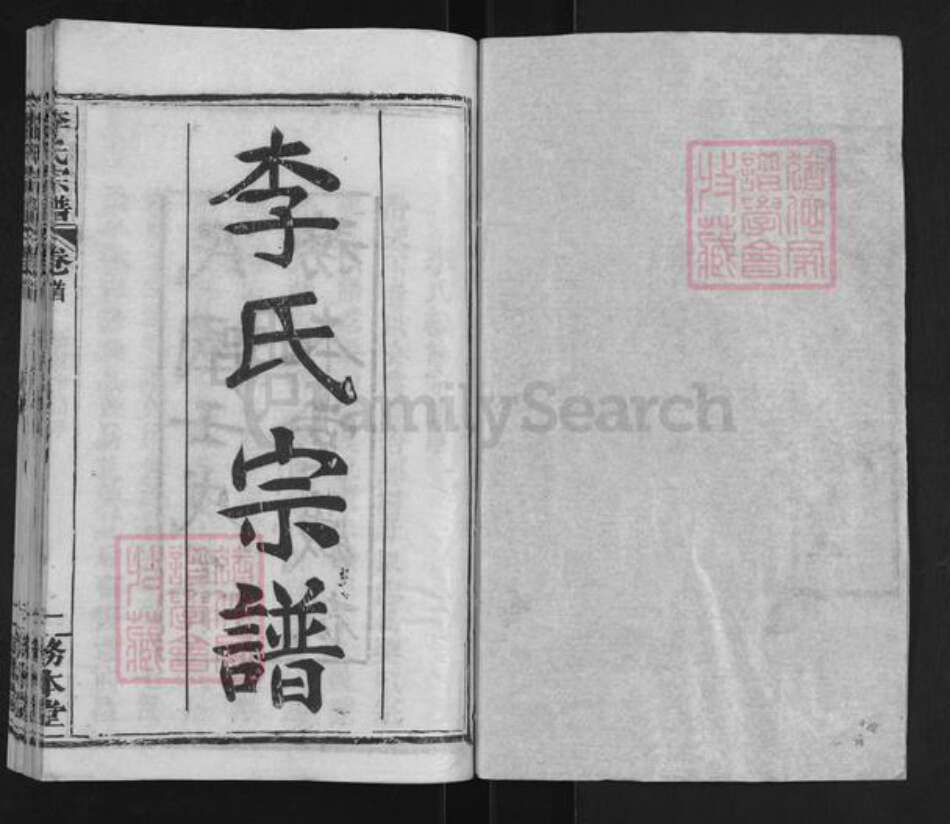 李氏宗譜
李氏宗譜
卷首
一
務本堂
譜學會
收藏
FamilySearch